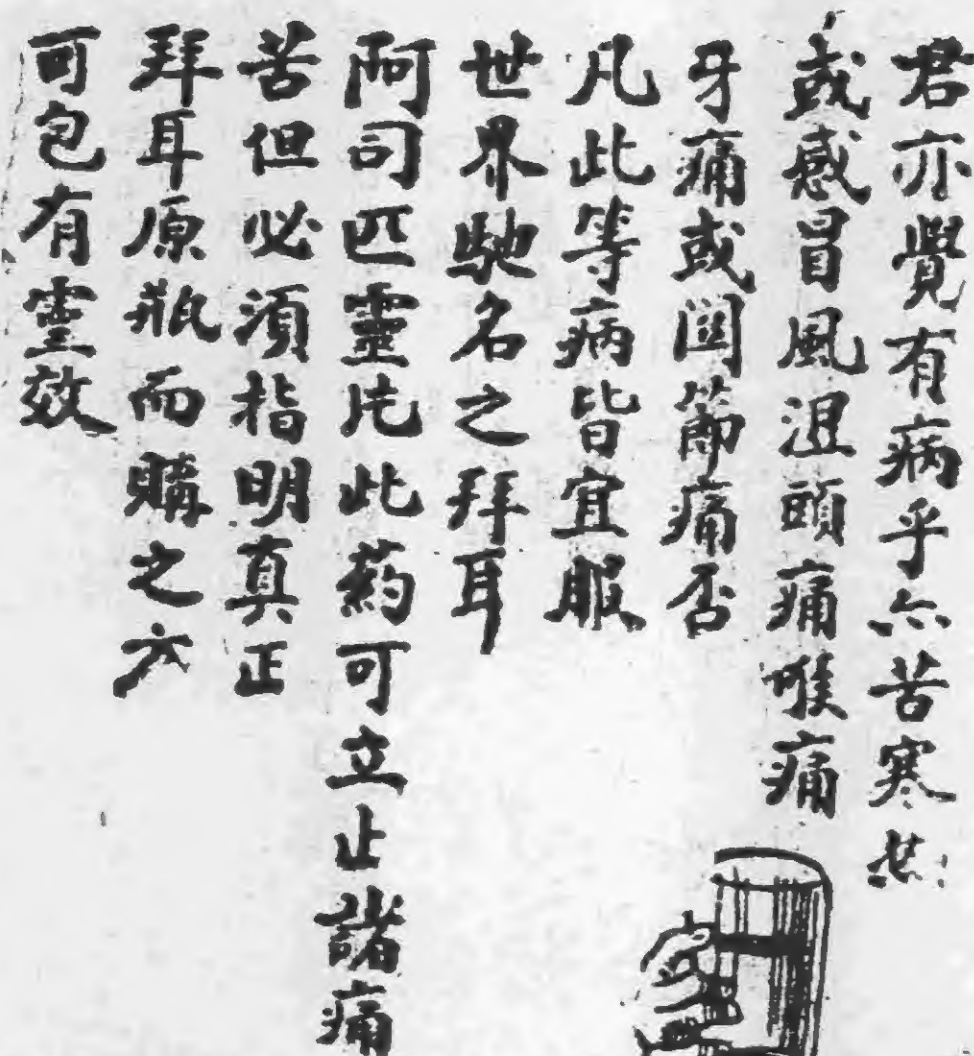 君亦覺有病乎亦苦寒熱
或感冒風溼頭痛喉痛
牙痛或關節痛否
凡此等病皆宜服
世界馳名之拜耳
阿司匹靈片此藥可立止諸痛
苦但必須指明真正
拜耳原瓶而購之方
可包有靈效